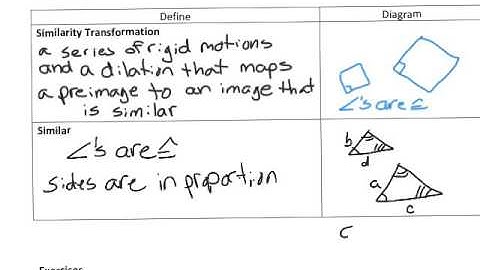 Define
Diagram
Similarity Transformation
a series of rigid motions
and a dilation that maps
a preimage to an image that
is similar
∠'s are ≅
Similar
∠'s are ≅
sides are in proportion
b
d
a
c
C
Exercises